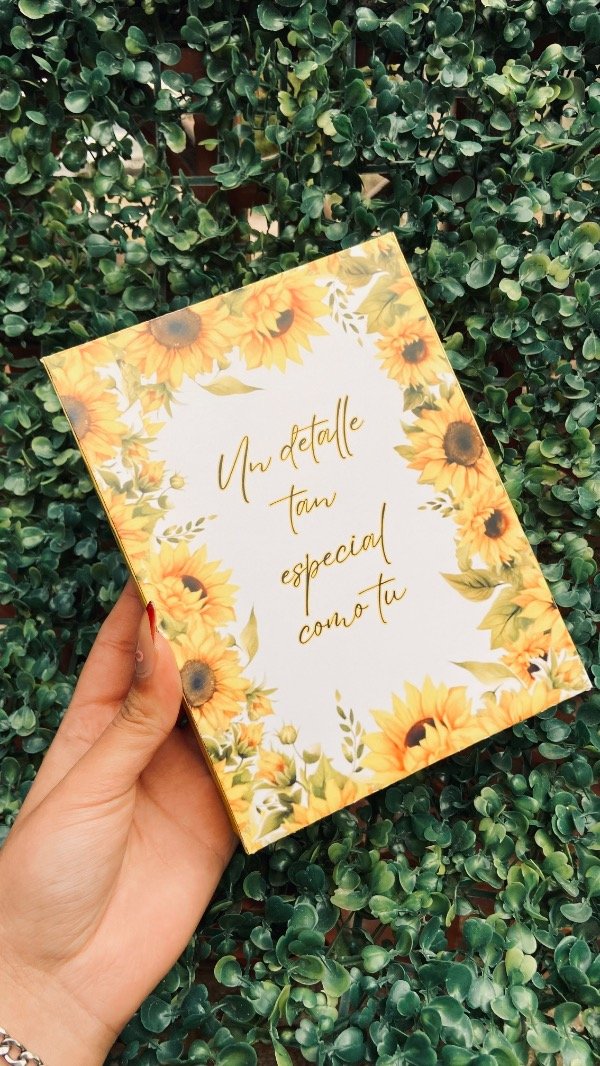 Un detalle
tan
especial
como tu